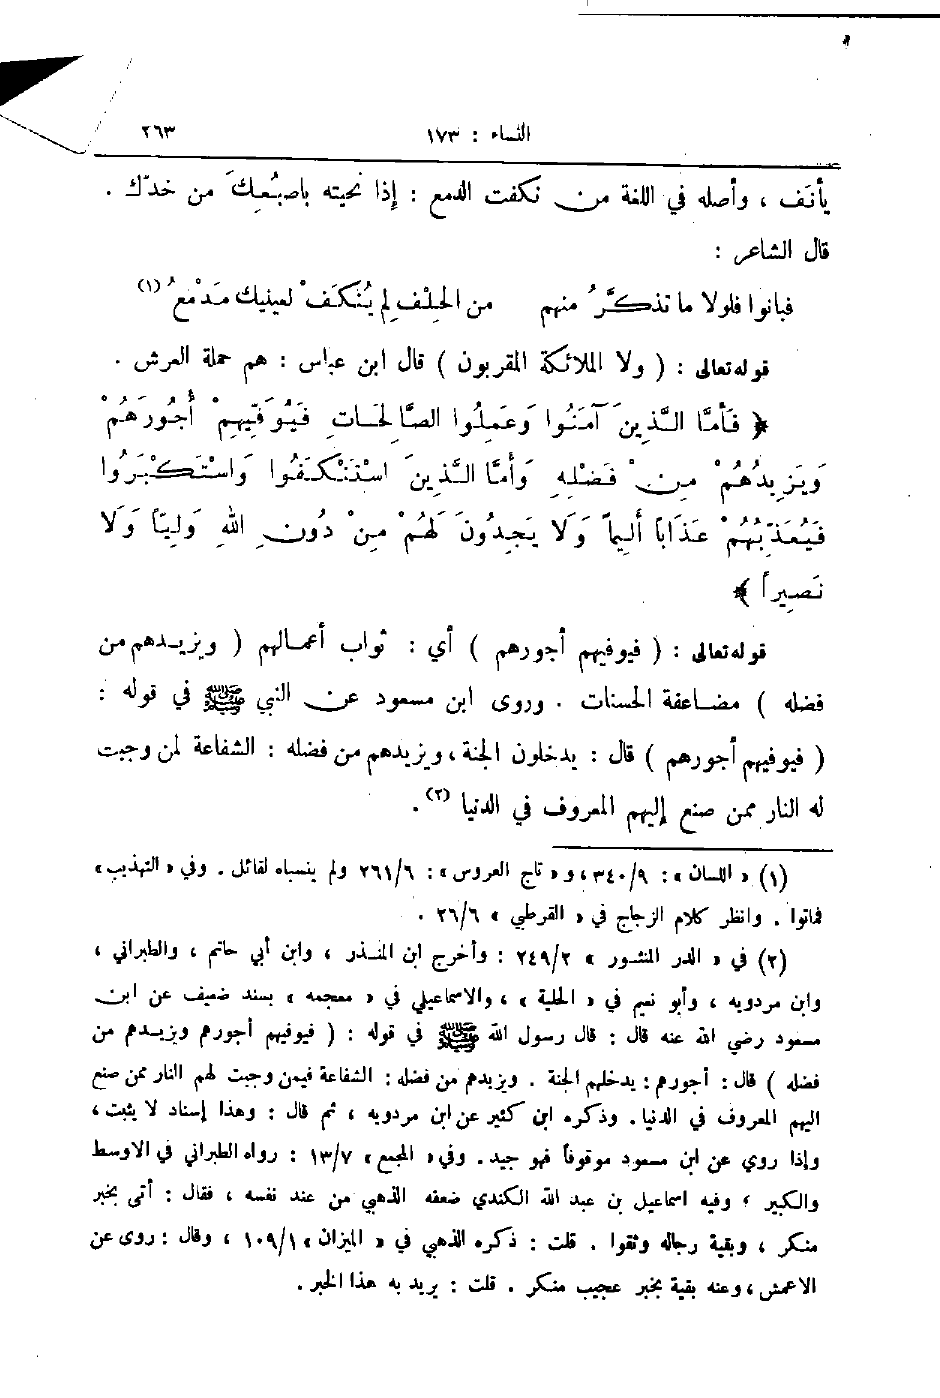 النساء : ١٧٣ ٢٦٣
يأنَف ، وأصله في اللغة من نكفت الدمع : إذا نحيته بإصبُعِكَ من خدّك .
قال الشاعر :
فبانوا فلولا ما تذكَّرُ منهم من الحِلْفِ لم يُنْكَفْ لعينيك مَدْمَعُ (١)
قوله تعالى : ( ولا الملائكة المقربون ) قال ابن عباس : هم حملة العرش .
﴿ فَأَمَّا الَّذِينَ آمَنُوا وَعَمِلُوا الصَّالِحَاتِ فَيُوَفِّيهِمْ أُجُورَهُمْ
وَيَزِيدُهُمْ مِنْ فَضْلِهِ وَأَمَّا الَّذِينَ اسْتَنْكَفُوا وَاسْتَكْبَرُوا
فَيُعَذِّبُهُمْ عَذَاباً أَلِيماً وَلَا يَجِدُونَ لَهُمْ مِنْ دُونِ اللهِ وَلِيّاً وَلَا
نَصِيراً ﴾
قوله تعالى : ( فيوفيهم أجورهم ) أي : ثواب أعمالهم ( ويزيدهم من
فضله ) مضاعفة الحسنات . وروى ابن مسعود عن النبي ﷺ في قوله :
( فيوفيهم أجورهم ) قال : يدخلون الجنة ، ويزيدهم من فضله : الشفاعة لمن وجبت
له النار ممن صنع إليهم المعروف في الدنيا (٢) .
(١) « اللسان » : ٣٤٠/٩ ، و « تاج العروس » : ٢٦١/٦ ولم ينسباه لقائل . وفي « التهذيب »
فماتوا . وانظر كلام الزجاج في « القرطبي » ٢٦/٦ .
(٢) في « الدر المنثور » ٢٤٩/٢ : وأخرج ابن المنذر ، وابن أبي حاتم ، والطبراني ،
وابن مردويه ، وأبو نعيم في « الحلية » ، والاسماعيلي في « معجمه » بسند ضعيف عن ابن
مسعود رضي الله عنه قال : قال رسول الله ﷺ في قوله : ( فيوفيهم أجورهم ويزيدهم من
فضله ) قال : أجورهم : يدخلهم الجنة . ويزيدهم من فضله : الشفاعة فيمن وجبت لهم النار ممن صنع
اليهم المعروف في الدنيا . وذكره ابن كثير عن ابن مردويه ، ثم قال : وهذا إسناد لا يثبت ،
وإذا روي عن ابن مسعود موقوفاً فهو جيد . وفي « المجمع » ١٣/٧ : رواه الطبراني في الاوسط
والكبير ، وفيه اسماعيل بن عبد الله الكندي ضعفه الذهبي من عند نفسه ، فقال : أتى بخبر
منكر ، وبقية رجاله وثقوا . قلت : ذكره الذهبي في « الميزان » ١٠٩/١ ، وقال : روى عن
الاعمش ، وعنه بقية بخبر عجيب منكر . قلت : يريد به هذا الخبر .